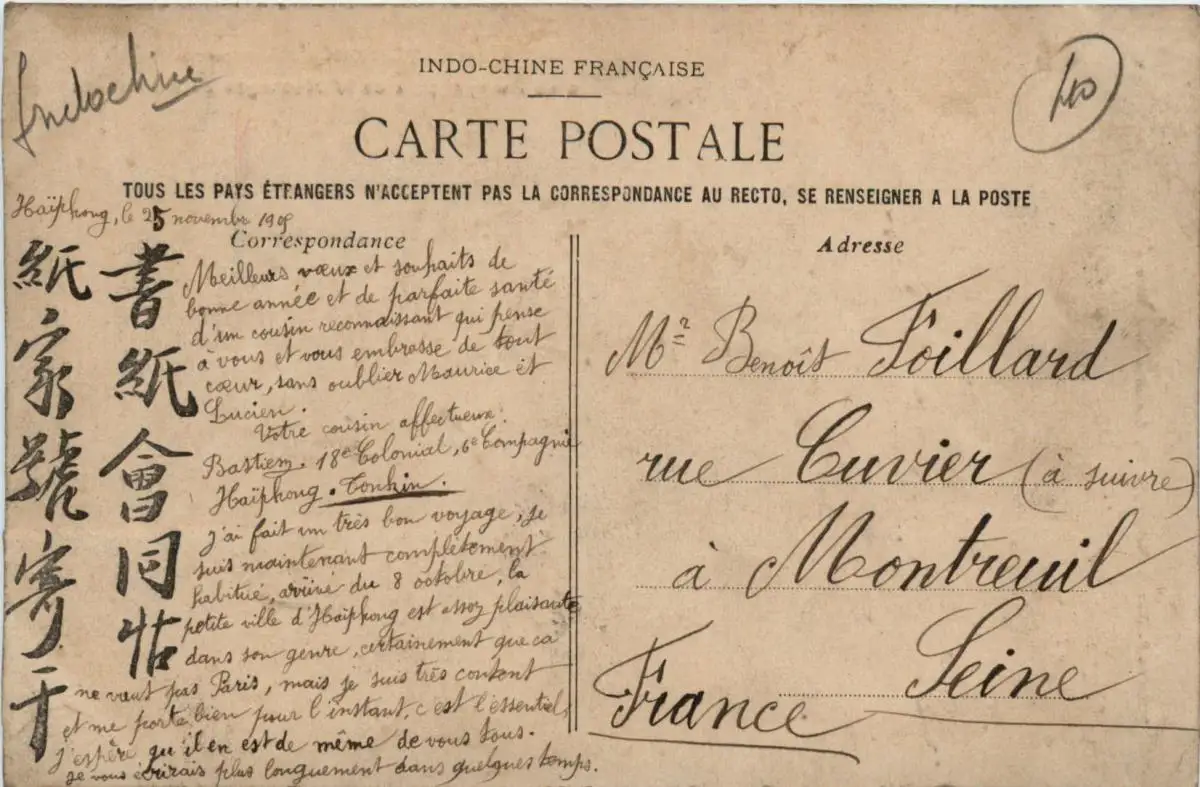 Indochine
40
INDO-CHINE FRANÇAISE
CARTE POSTALE
TOUS LES PAYS ÉTRANGERS N'ACCEPTENT PAS LA CORRESPONDANCE AU RECTO, SE RENSEIGNER A LA POSTE
Haïphong, le 25 novembre
Correspondance
書紙會同帖
紙家號寄于
Meilleurs vœux et souhaits de
bonne année et de parfaite santé
d'un cousin reconnaissant qui pense
à vous et vous embrasse de tout
cœur, sans oublier Maurice et
Lucien.
Votre cousin affectueux.
Bastien. 18e Colonial, 6e Compagnie
Haïphong. Tonkin.
J'ai fait un très bon voyage, je
suis maintenant complètement
habitué, arrivé du 8 octobre, la
petite ville d'Haïphong est assez plaisante
dans son genre, certainement que ca
ne vœut pas Paris, mais je suis très content
et me porte bien pour l'instant, c'est l'essentiel,
j'espère qu'il en est de même de vous tous.
Je vous écrirais plus longuement dans quelques temps.
Adresse
Mr Benoît Foillard
rue Cuvier (à suivre)
à Montreuil
Seine
France